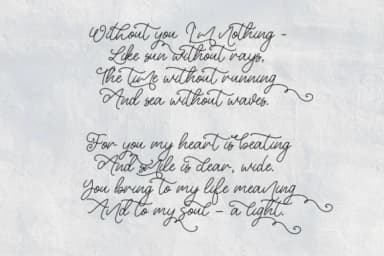 Without you I'm nothing -
Like sun without rays,
The time without running
And sea without waves.
For you my heart is beating
And smile is clear, wide.
You bring to my life meaning
And to my soul - a light.